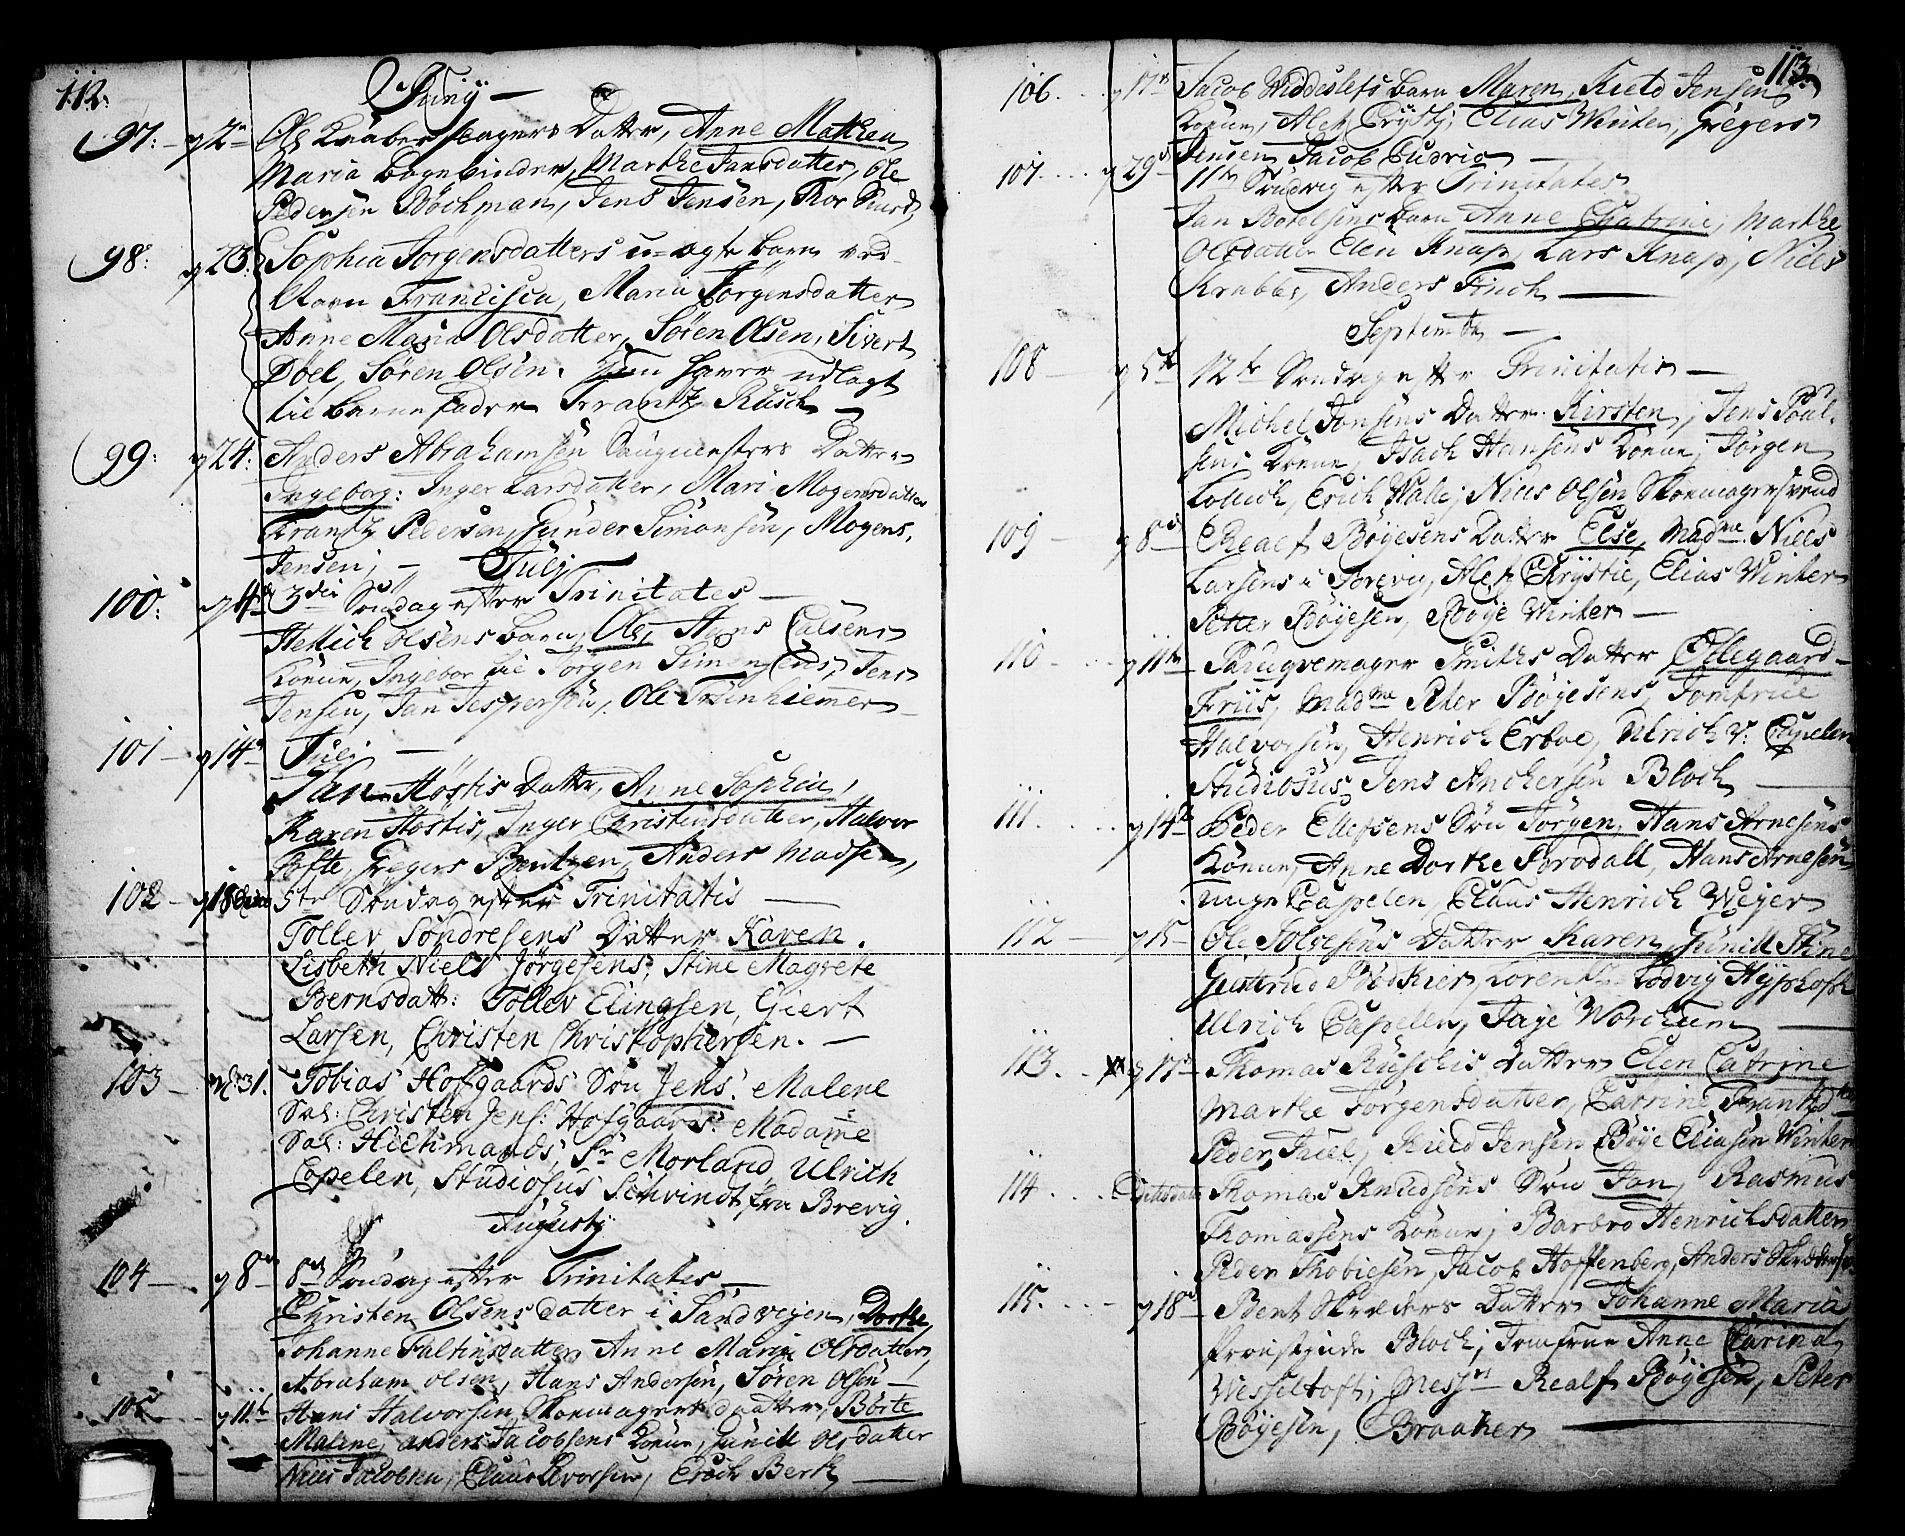 112.
Junij —
97. — d 2n Ole Krabersteagers Datter, Anne Mathea
Maria bogebinders, Marthe Jansdatter, Ole
Pedersen Bøchman, Jens Jensen, Thor
98: d 23. Sophia Jørgensdatters u-ægte barn ved
Navn Francisca, Maria Jørgensdatter
Anne Maria Olsdatter, Søren Olsen, Sivert
Døel, Søren Olsen. Hun haver udlagt
til barnefader Frantz Rusch —
99: d 24: Anders Abrahamsen Saugmesters Datter
Ingeborg: Inger Larsdatter, Mari Mogensdatter
Frantz Pedersen, Gunder Simonsen, Mogens
Jensen, — Julij
100: d 4de 3die Søndag efter Trinitates —
Hellich Olsens barn, Ole, Hans Calsens
Konne, Ingebor Jørgen Simon, Jens
Jensen, Jan Jespersen, Ole Trønhiemer —
101 — d 14de Juli —
Jan Høstis Datter, Anne Sophia,
Karen Høstis, Inger Christensdatter, Halvor
Tofte, Gregers Bentzen, Anders Madsen,
102 — d 18 5te Søndag efter Trinitatis —
Tollev Søndresens Datter Karen.
Lisbeth Niels Jørgesens; Stine Magrete
Bernsdatt: Tollev Elingsen, Giert
Larsen, Christen Christophersen. —
103 — d. 31. Tobias Hofgaards Søn Jens. Malene
Sal: Christen Jens: Hofgaards. Madame
Sal: Hichmands, Sr Morland, Ulrich
Copelen, Studiosus Schvindt fra Brevig.
Augustj:
104 — d 8de 8de Søndag efter Trinitates —
Christen Olsens datter i Sandvejen, Dorthe,
Johanne Faltinsdatter, Anne Maria Olsdatter,
Abraham Olsen, Hans Andersen, Søren Olsen —
105 d 11te Hans Halvorsen Skomagers daatter, Børte
Malene, Anders Jacobsens Konne, Gunild Olsdatter
Niels Jacobsen, Claus Evorsen, Erich Berth —
113.
106. . . . d 17de Jacob Widdeslefs barn Maren, Kield Jensens
Konne, Alet Crystj, Elias Winter, Gregers
Jensen, Jacob Cudrio —
107. . . . d 29de 11te Søndag efter Trinitates.
Jan Botelsens barn Anne Chatrine, Marthe
Olsdatter Elen Knap, Lars Knap, Niels
Krabbe, Anders Finch —
Septembr —
108 — d 5te 12te Søndag efter Trinitatis —
Michel Jonsens Datter Kirsten, Jens Poul-
sens Konne, Isach Hansens Konne, Jørgen
Lollich, Erich Walle, Niels Olsen Skomagersvend
109 — d 8de Realf Bøyesens Datter Else, Madme Niels
Larsens i Torevig, Alet Chrystie, Elias Winter
Petter Bøyesen, Bøye Winter —
110 — . . . d 11te Parugvemager Smiths Datter Ødegaard
Friis, Madme Peter Bøyesens, Jomfrue
Halvorsen, Henrich Erboe, Ulrich v: Capelen
Studiosus Jens Anchersen Bloch —
111. . . . . . d 14de Peder Ellefsens Søn Jørgen, Hans Arnesens
Konne, Anne Dorthe Porsdall, Hans Arnesen
unge Capelen, Claus Henrich Weyer
112 — d 15 — Ole Solvesens Datter Karen, Gunild Stine
Giertrud Bødkier, Lorentz Lodvig Hyphoff
Ulrich Capelen, Faye Worchum —
113. . . d 17de Thomas Ruschis Datter Elen Catrine
Marthe Jørgensdatter, Carrine Frantzdtter
Peder Juel, Kield Jensen Bøye Eliasen Winter
114. . . . Thomas Knudsens Søn Jan, Rasmus
Thomassens Konne, Barbro Henrichsdatter
Peder Thobiesen, Jacob Hoffenberg, Anders
115. . . . — d 18de Bent Skræders Datter Johanne Maria
Provstinde Bloch, Jomfrue Anne Carina
Wesseltoft, Messrs Realf Bøyesen, Peter
Bøyesen, Braaker —